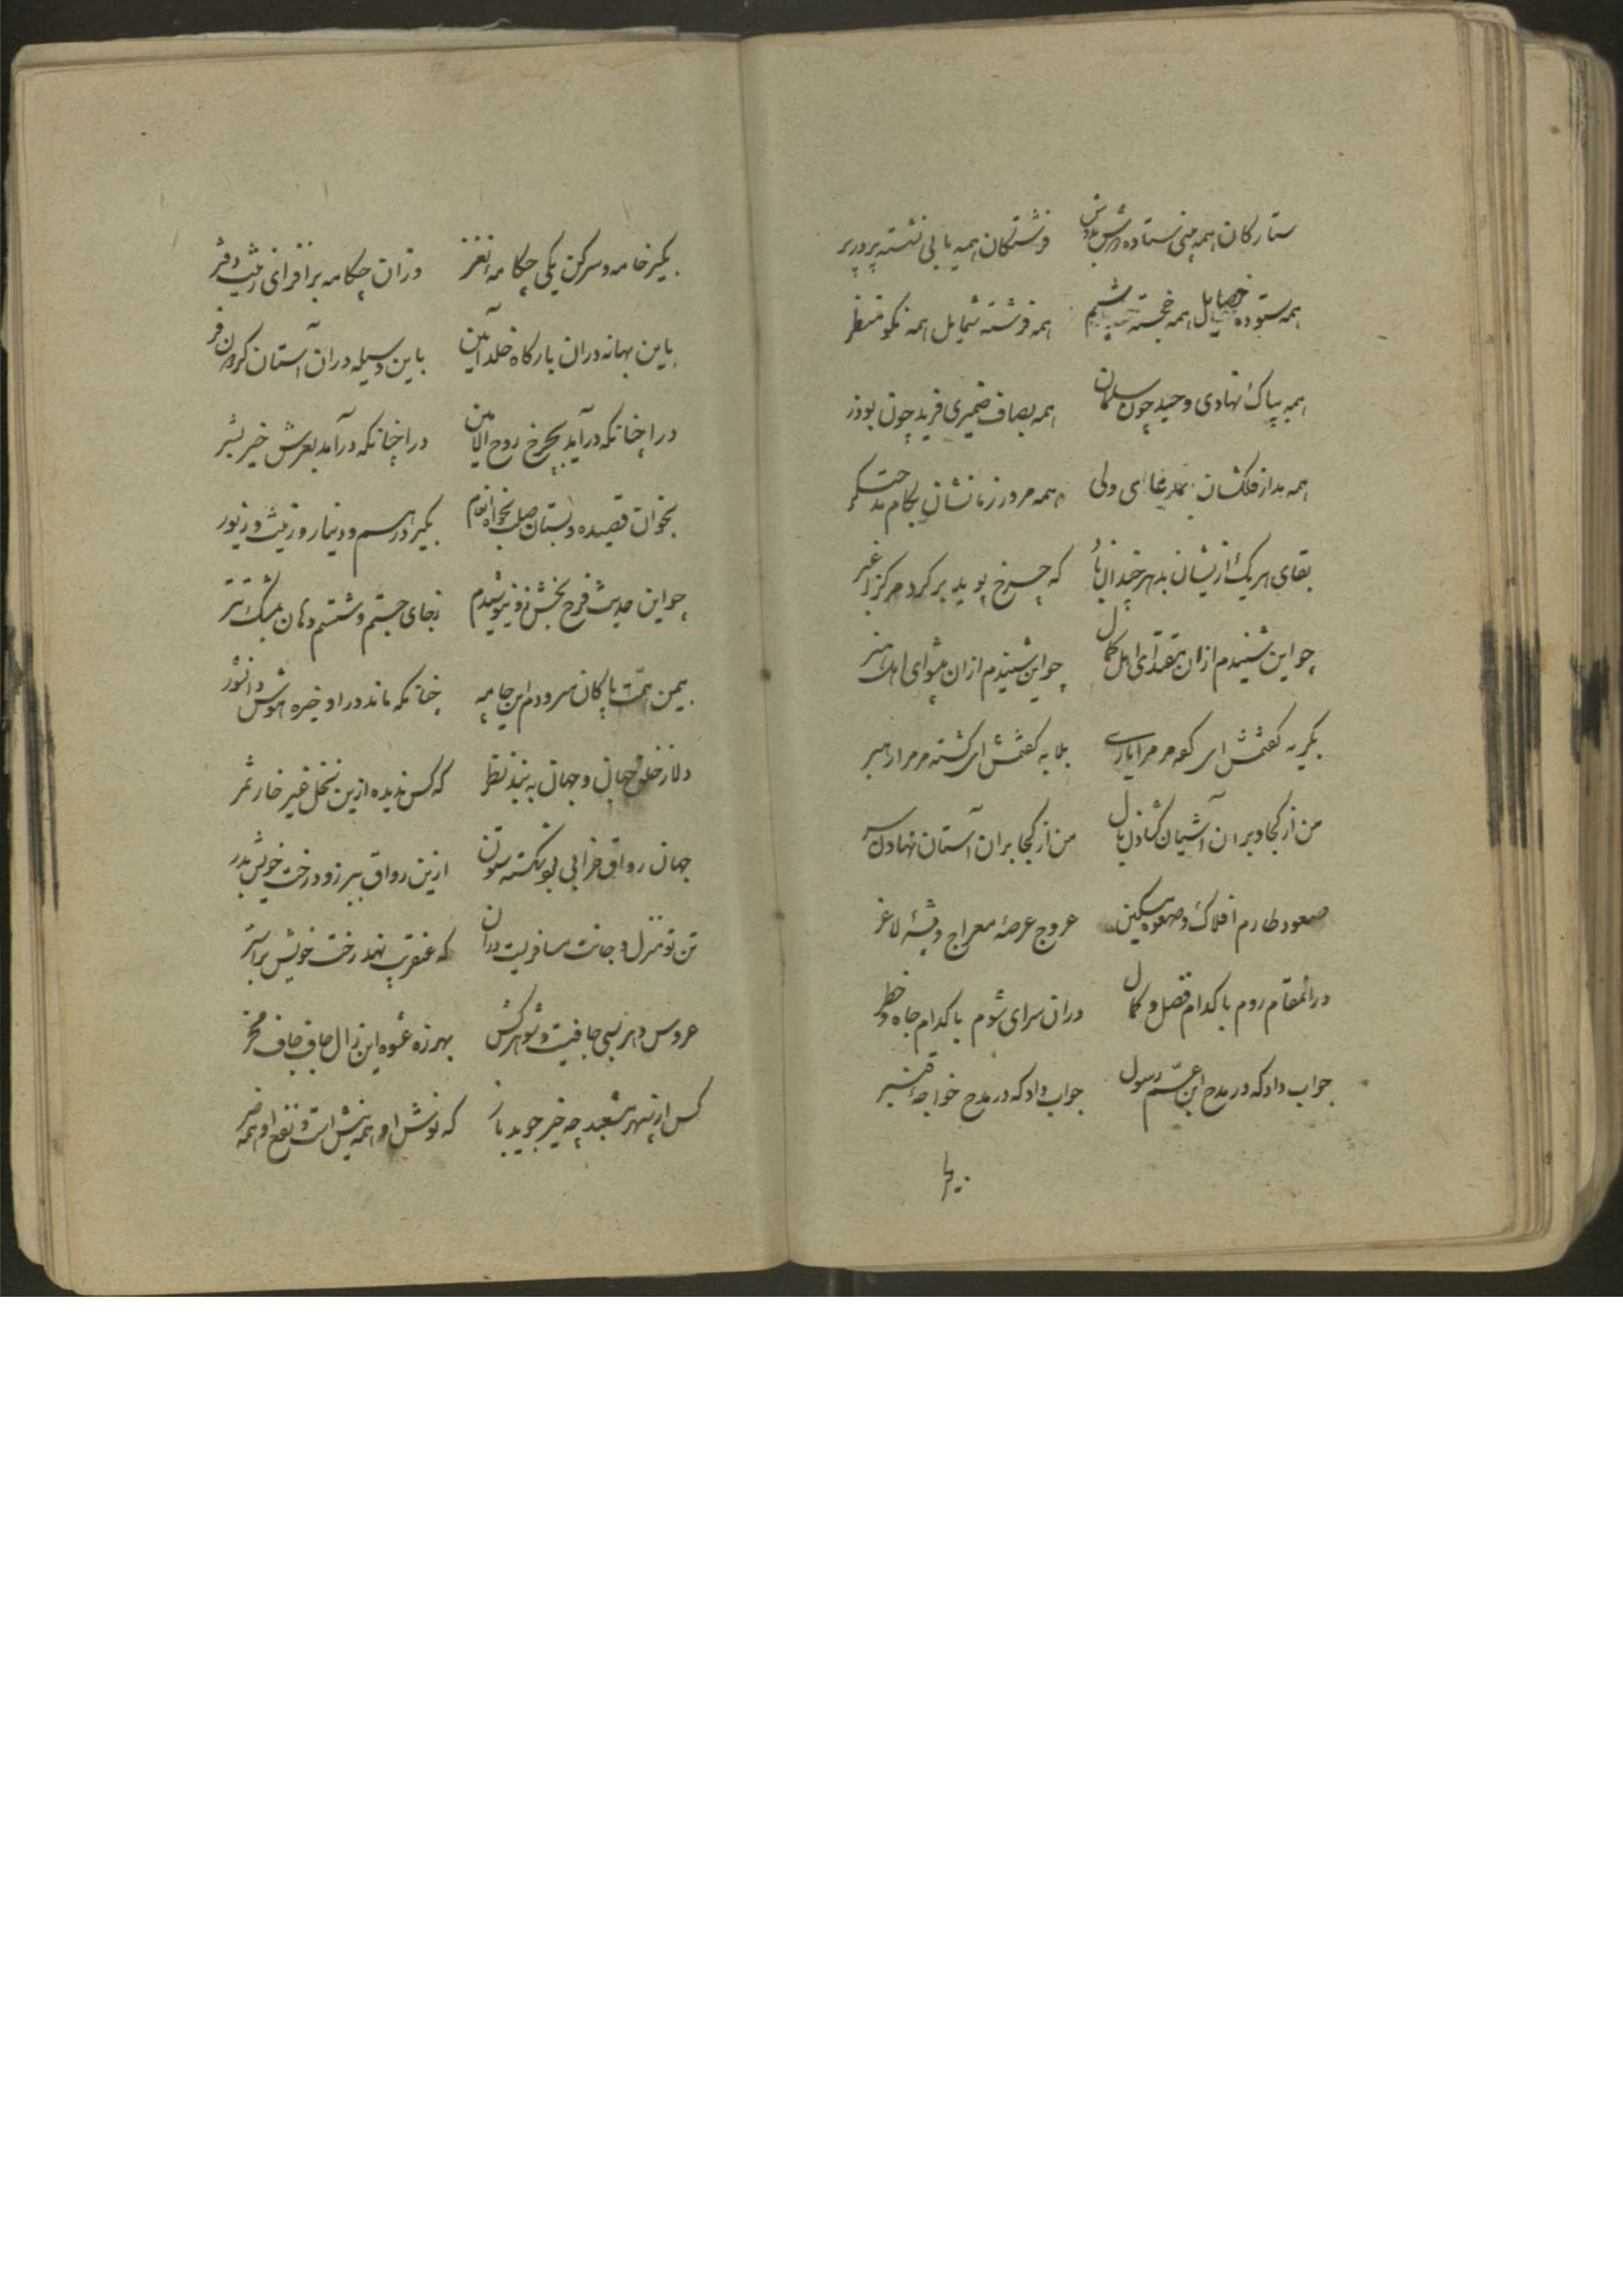 ستارکان همه پیش ستاده دوش بدوش فرشتکان همه یا بی نشسته پر در پر
همه ستوده خصایل همه خجسته شیم همه فرشته شمایل همه نکو منظر
همه بپاک نهادی وحید چون سلمان همه بصاف ضمیری فرید چون بوذر
همه مدار فلکشان بمدعای ولی همه مرور زمانشان بکام مدحتکر
بقای هر یک ازیشان بدهر چندان باد که چرخ پوید بر کرد مرکز اغبر
چو این شنیدم ازان مقتدای اهل کمال چو این شنیدم ازان پیشوای اهل هنر
بکریه کفتمش ای کو مر مرا یاری بلابه کفتمش ای کشته مر مرا رهبر
من از کجا و بران آشیان کشادن بال من از کجا و بران آستان نهادن سر
صعود طارم افلاک و صعوه مسکین عروج عرصهٔ معراج و پشهٔ لاغر
درانمقام روم با کدام فضل و کمال دران سرای شوم با کدام جاه و خطر
جواب داد که در مدح ابن عمّ رسول جواب داد که در مدح خواجهٔ قنبر
بکیر خامه و سر کن یکی چکامهٔ نغز وزان چکامه برافزای زیب دفتر
باین بهانه دران بارکاه خلد آیین باین وسیله دران آستان کردون فر
درا چنانکه درآید بچرخ روح الامین درا چنانکه درآمد بعرش خیر بشر
بخوان قصیده و بستان صله بخواه انعام بکیر درهم و دینار و زینت و زیور
چو این حدیث فرح بخش ازو نیوشیدم زجای جستم و شستم دهان بمشک تتر
بیمن همّت پاکان سرودم این چامه چنانکه ماند در او خیره هوش دانشور
دلا ز خلق جهان و جهان به بند نظر که کس ندیده ازین نخل غیر خار ثمر
جهان رواق خرابی بود شکسته ستون ازین رواق ببر زود رخت خویش بدر
تن تو منزل و جانت مسافریست دران که عنقریب نهد رخت خویش بر استر
عروس دهر بسی جافیست و شوهرکش بهرزه عشوه این زال جاف جاف مخر
کس از سپهر مشعبد چه خیر جوید باز که نوش او همه نیش است و نفع او همه ضر
بکیر